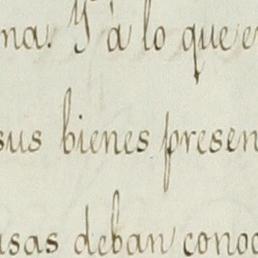 na. Y á lo que e
sus bienes presen
usas deban conoc